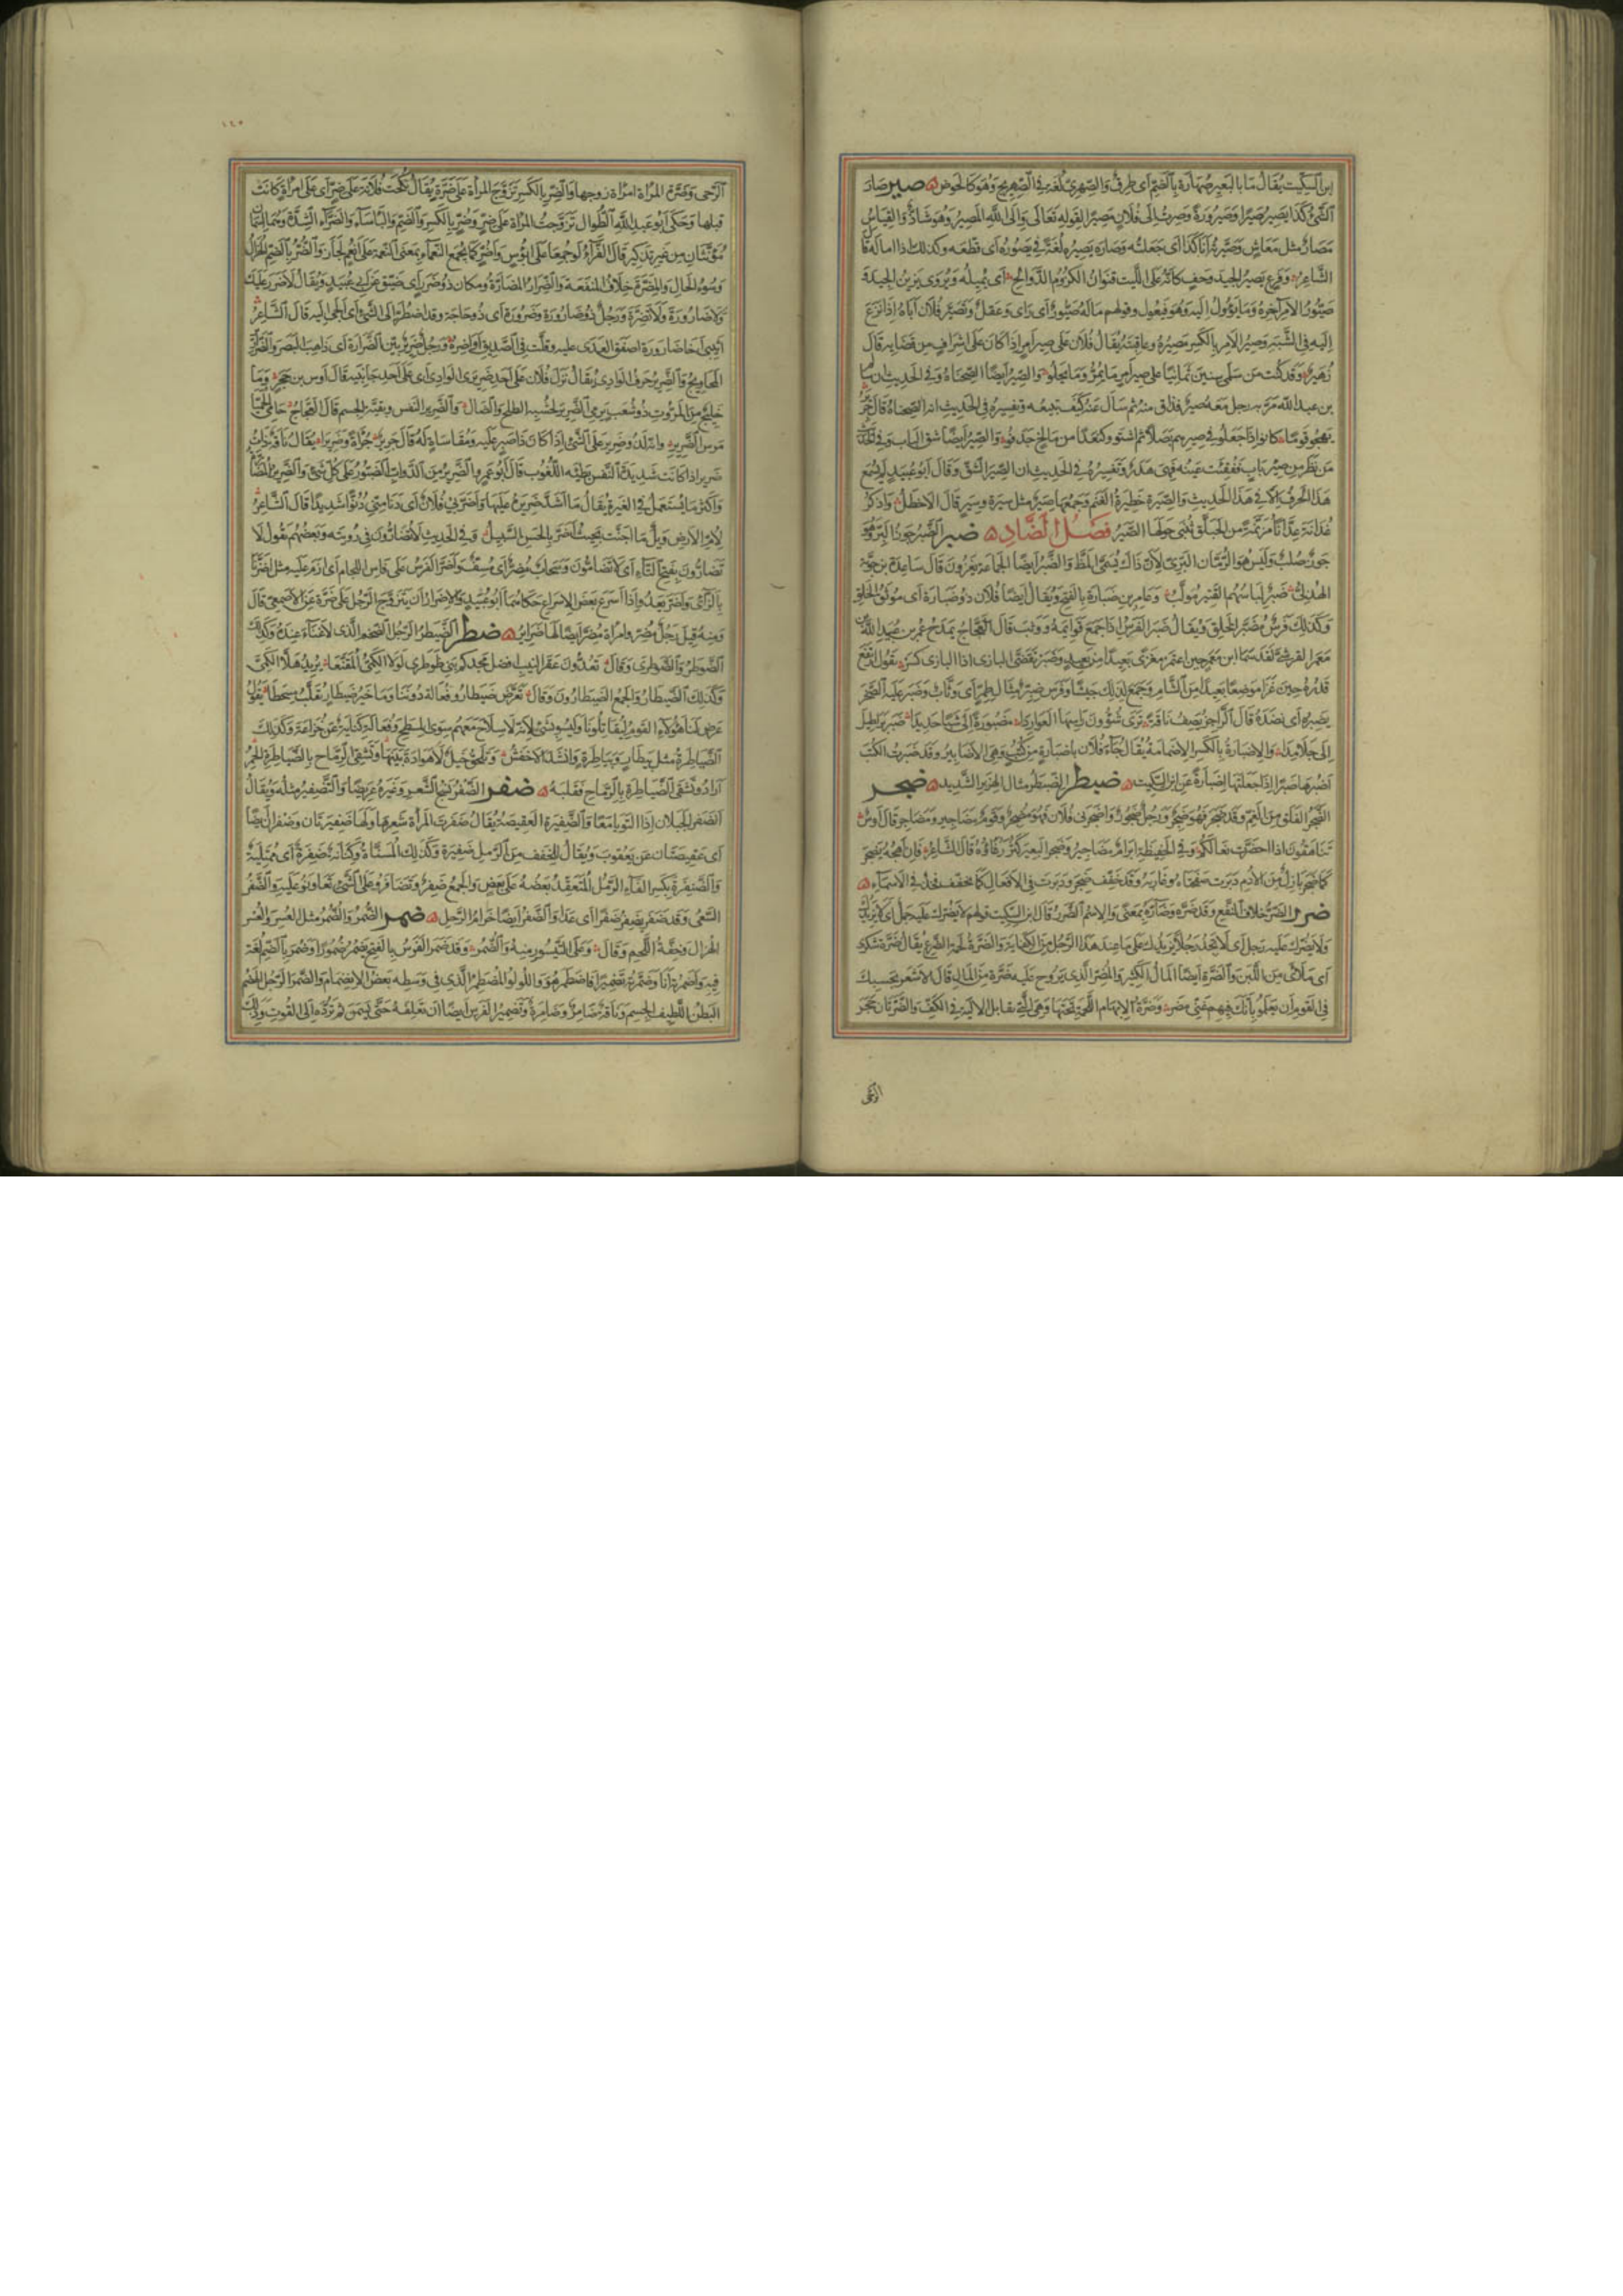 ابن السكيت يقال ما بالبعير صهارة بالضم اى طرق والصهرى لغة فى الصهريج وهو كالحوض صير صار
الشئ كذا يصير صيرا وصيرورة وصرت الى فلان مصيرا لقوله تعالى والى الله المصير وهو شاذ والقياس
مصار مثل معاش وصيرته انا كذا اى جعلته وصاره يصيره لغة فى يصوره اى قطعه وكذلك اذا اماله قال
الشاعر وفرع يصير الجيد وحف كانه على الليت قنوان الكروم الدوالح اى يميله ويروى يزين الجيد
صيور الامر آخره وما يؤول اليه وهو فيعول وقولهم ماله صيور اى راى وعقل وتصير فلان اباه اذا نزع
اليه فى الشبه وصير الامر بالكسر مصيره وعاقبته يقال فلان على صير امر اذا كان على اشراف من قضايه قال
زهير وقد كنت من سلمى سنين ثمانيا على صير امر ما يمر وما يحلو والصير ايضا الصحناة وفى الحديث ان سالم
بن عبد الله مر به رجل معه صير فذاق منه ثم سال عنه كيف تبيعه وتفسيره فى الحديث انه الصحناة قال جرير
يهجو قوما كانوا اذا جعلوا فى صيرهم بصلا ثم اشتووا كنعدا من مالح جدفوا والصير ايضا شق الباب وفى الحديث
من نظر من صير باب ففقئت عينه فهى هدر وتفسيره فى الحديث ان الصير الشق وقال ابو عبيد لم يسمع
هذا الحرف الا فى هذا الحديث والصيرة حظيرة الغنم وجمعها صير مثل سيرة وسير قال الاخطل واذكر
غدانة عدانا مزنمة من الحبلق تبنى حولها الصير فصل الضاد ضبر الضبر جوز البر وهو
جوز صلب وليس هو الرمان البرى لان ذاك يسمى المظ والضبر ايضا الجماعة يغزون قال ساعدة بن جؤية
الهذلى ضبر لباسهم القتير مؤلب وعامر بن ضبارة بالفتح ويقال ايضا فلان ذو ضبارة اى موثق الخلق
وكذلك فرس مضبر الخلق ويقال ضبر الفرس اذا جمع قوايمه ووثب قال العجاج يمدح عمر بن عبيد الله بن
معمر القرشى لقد سما ابن معمر حين اعتمر مغزى بعيدا من بعيد وضبر تقضى البازى اذا البازى كسر يقول ارتفع
قدره حين غزا موضعا بعيدا من الشام وجمع لذلك جيشا وفرس ضبر مثال طمر اى وثاب وضبر عليه الصخر
يضبره اى نضده قال الراجز يصف ناقة ترى شؤون راسها العواردا مضبورة الى شبا حدايدا ضبر براطيل
الى جلامدا والاضبارة بالكسر الاضمامة يقال جاء فلان باضبارة من كتب وهى الاضابير وقد ضبرت الكتب
اضبرها ضبرا اذا جعلتها اضبارة عن ابن السكيت ضبطر الضبطر مثال الهزبر الشديد ضجر
الضجر القلق من الغم وقد ضجر فهو ضجر ورجل ضجور واضجرنى فلان فهو مضجر وقوم مضاجير ومضاجر قال اوس
تناهقون اذا اخضرت نعالكم وفى الحفيظة ابرام مضاجير وضجر البعير كثر رغاؤه قال الشاعر فان اهجه يضجر
كما ضجر بازل من الادم دبرت صفحتاه وغاربه وقد خفف ضجر ودبرت فى الافعال كما يخفف فخذ فى الاسماء
ضرر الضر خلاف النفع وقد ضره وضاره بمعنى والاسم الضرر قال ابن السكيت قولهم لا يضرك عليه جمل اى لا يزيدك
ولا يضرك عليه رجل اى لا تجد رجلا يزيدك على ما عند هذا الرجل من الكفاية والضرة لحمة الضرع يقال ضرة شكرى
اى ملاى من اللبن والضرة ايضا المال الكثير والمضر الذى يروح عليه ضرة من المال قال الاشعر بحسبك
فى القوم ان يعلموا بانك فيهم غنى مضر وضرة الابهام اللحمة تحتها وهى التى تقابل الالية فى الكف والضرتان حجرا
الرحى
الرحى وضرة المراة امراة زوجها والضر بالكسر تزوج المراة على ضرة يقال نكحت فلانة على ضر اى على امراة كانت
قبلها وحكى ابو عبد الله الطوال تزوجت المراة على ضر وضر بالكسر والضم والباساء والضراء الشدة وهما اسمان
مؤنثان من غير تذكير قال الفراء لو جمعا على ابؤس واضر كما يجمع النعماء بمعنى النعمة على انعم لجاز والضر بالضم الهزال
وسوء الحال والمضرة خلاف المنفعة والضرار المضارة ومكان ذو ضرر اى ضيق عن ابى عبيد ويقال لا ضرر عليك
ولا ضارورة ولا تضرة ورجل ذو ضارورة وضرورة اى ذو حاجة وقد اضطر الى الشئ اى الجئ اليه قال الشاعر
اثيبى اخا ضارورة اصفق العدى عليه وقلت فى الصديق اواصره ورجل ضرير بين الضرارة اى ذاهب البصر والضراير
المحاويج والضرير حرف الوادى يقال نزل فلان على احد ضريرى الوادى اى على احد جانبيه قال اوس بن حجر وما
خليج من المروت ذو شعب يرمى الضرير بخشب الطلح والضال والضرير النفس وبقية الجسم قال العجاج حامى الحميا
مرس الضرير وانه لذو ضرير على الشئ اذا كان ذا صبر عليه ومقاساة له قال جرير جراة وضريرا يقال ناقة ذات
ضرير اذا كانت شديدة النفس بطيئة اللغوب قال ابو عمرو الضرير من الدواب الصبور على كل شئ والضرير المضارة
واكثر ما يستعمل فى الغيرة يقال ما اشد ضريره عليها واضر بى فلان اى دنا منى دنوا شديدا قال الشاعر
لام الارض ويل ما اجنت بحيث اضر بالحسن السبيل وفى الحديث لا تضارون فى رويته وبعضهم يقول لا
تضارون بفتح التاء اى لا تضامون وسحاب مضر اى مسف واضر الفرس على فاس اللجام اى ازم عليه مثل اضز
بالزاى واضر يعدو اذا اسرع بعض الاسراع حكاهما ابو عبيد والاضرار ان يتزوج الرجل على ضرة عن الاصمعى قال
ومنه قيل رجل مضر وامراة مضر ايضا لها ضراير ضطر الضيطر الرجل الضخم الذى لا غناء عنده وكذلك
الضوطر والضوطرى وقال تعدون عقر النيب افضل مجدكم بنى ضوطرى لولا الكمى المقنعا يريد هلا الكمى
وكذلك الضيطار والجمع الضيطارون وقال تعرض ضيطارو فعالة دوننا وما خير ضيطار يقلب مسطحا يقول
تعرض لنا هؤلاء القوم ليقاتلونا وليسوا بشئ لانه لا سلاح معهم سوى المسطح وفعالة كناية عن خزاعة وكذلك
الضياطرة مثل بيطار وبياطرة وانشد الاخفش وتلحق خيل لا هوادة بينها وتشقى الرماح بالضياطرة الحمر
اراد وتشقى الضياطرة بالرماح فقلبه ضفر الضفر نسج الشعر وغيره عريضا والتضفير مثله ويقال
انضفر الحبلان اذا التويا معا والضفيرة العقيصة يقال ضفرت المراة شعرها ولها ضفيرتان وضفران ايضا
اى عقيصتان عن يعقوب ويقال للحقف من الرمل ضفيرة وكذلك المسناة وكنانة ضفرة اى ممتلية
والضفرة بكسر الفاء الرمل المتعقد بعضه على بعض والجمع ضفر وتضافروا على الشئ تعاونوا عليه والضفر
السعى وقد ضفر يضفر ضفرا اى عدا والضفر ايضا حزام الرحل ضمر الضمر والضمر مثل العسر والعسر
الهزال وخفة اللحم وقال وعلى التيسور منه والضمر وقد ضمر الفرس بالفتح يضمر ضمورا وضمر بالضم لغة
فيه واضمرته انا وضمرته تضميرا فاضطمر هو واللولو المضطمر الذى فى وسطه بعض الانضمام والضمر الرجل الهضيم
البطن اللطيف الجسم وناقة ضامر وضامرة وتضمير الفرس ايضا ان تعلفه حتى يسمن ثم ترده الى القوت وذلك